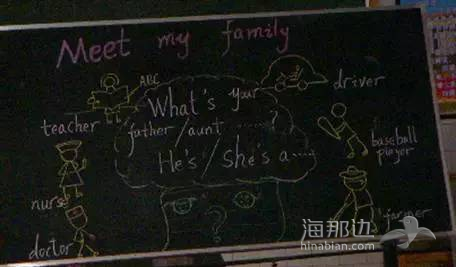 Meet my family
ABC
What's your
father/aunt ......?
He's/She's a.....
?
teacher
nurse
doctor
driver
baseball
player
farmer
海那边
hinabian.com